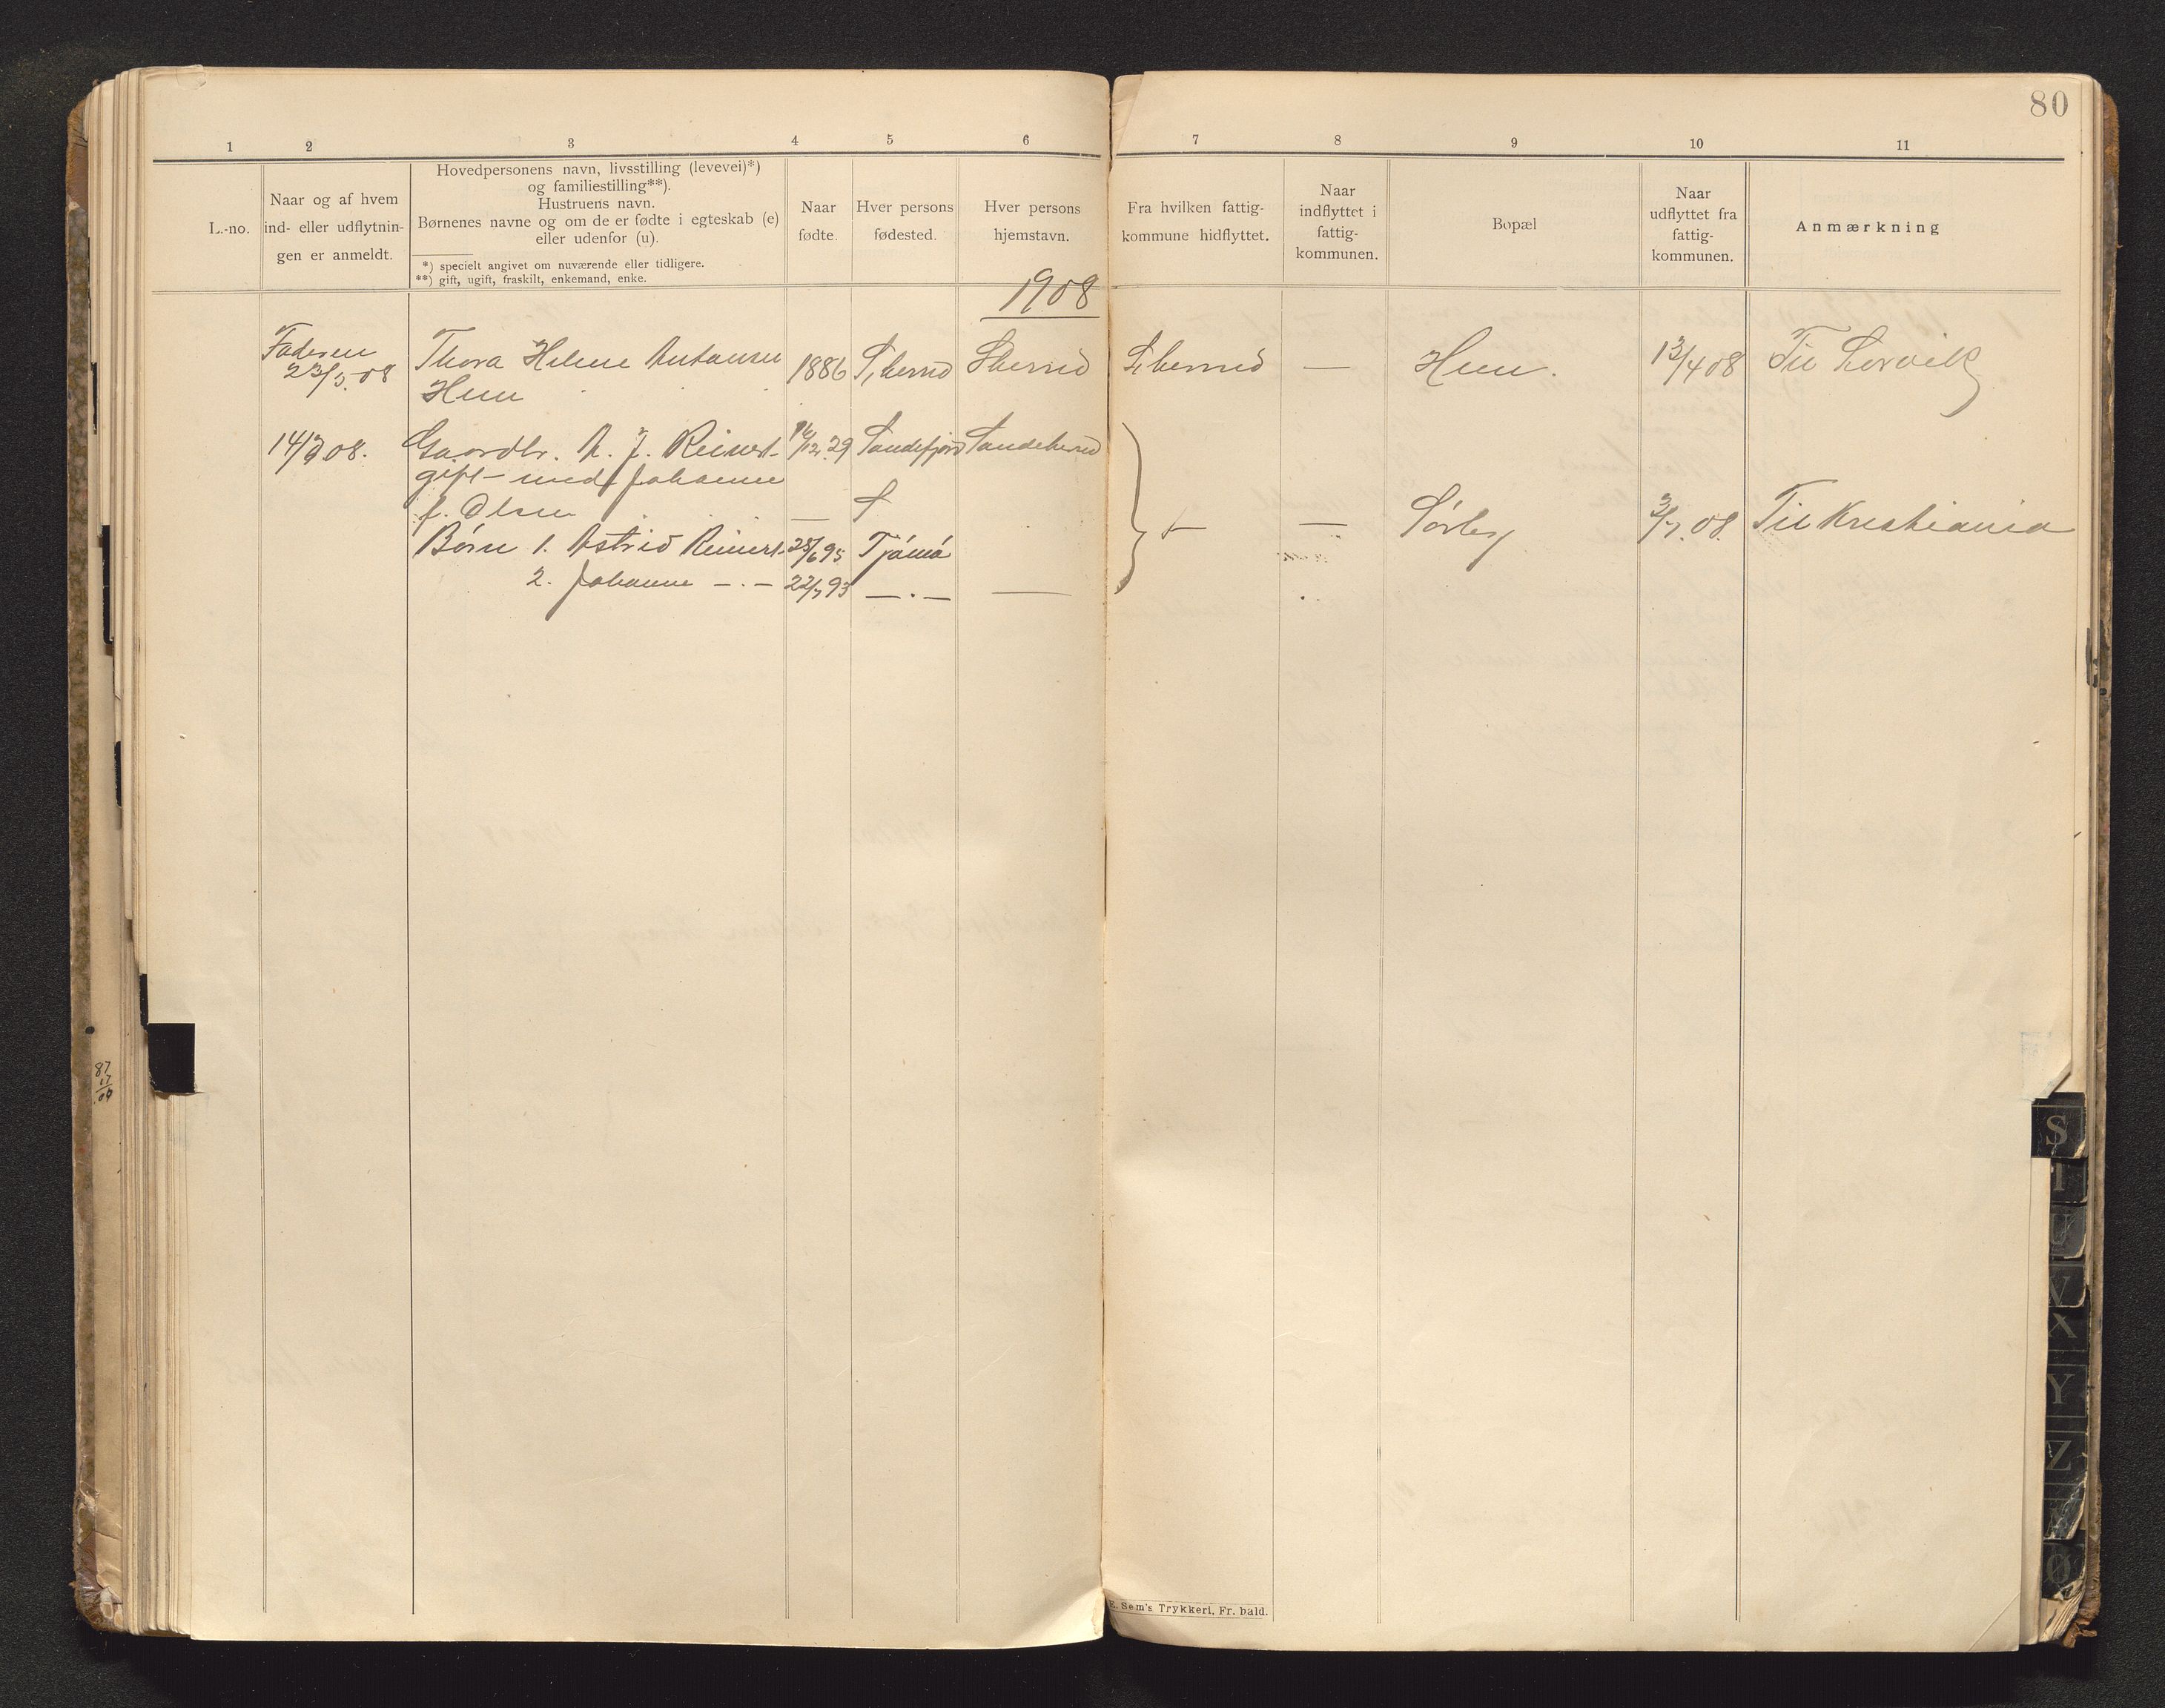 80
1 2 3 4 5 6 7 8 9 10 11
L.-no.
Naar og af hvem
ind- eller udflytnin-
gen er anmeldt.
Hovedpersonens navn, livsstilling (levevei)*)
og familiestilling**).
Hustruens navn.
Børnenes navne og om de er fødte i egteskab (e)
eller udenfor (u).
*) specielt angivet om nuværende eller tidligere.
**) gift, ugift, fraskilt, enkemand, enke.
Naar
fødte.
Hver persons
fødested.
Hver persons
hjemstavn.
Fra hvilken fattig-
kommune hidflyttet.
Naar
indflyttet i
fattig-
kommunen.
Bopæl
Naar
udflyttet fra
fattig-
kommunen.
Anmærkning
1908
Faderen Thora Helene Antonsen
23/3.08 1886 S,herred Sherred S,herred — Hem. 13/4 08 Til Larvik
Hem
14/7 08. Gaardbr. A. J. Reinert 16/12.29 Sandefjord Sandeherred
gift med Johanne
f. Olsen — — Sørby 3/7.08. Til Kristiania
Børn 1. Astrid Reinert 25/6 95 Tjömö
2. Johanne —.— 22/7 93 —.— —
87
17
.04
S
T
U
V
X
Y
Z
Ø
E. Sem's Trykkeri, Fr. hald.